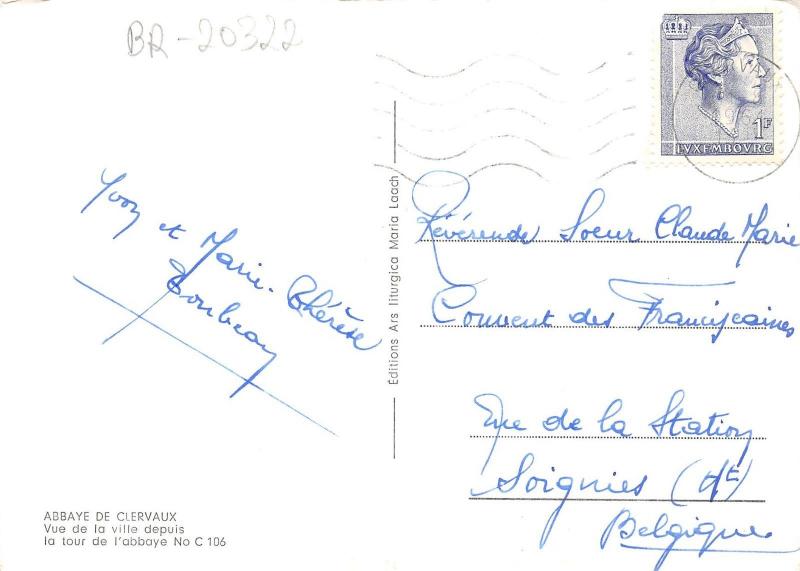 BR-20322
1F
LVXEMBOVRG
Yvon et
Marie-Thérèse
Révérende Soeur Claude Marie
Couvent des Franciscaines
Rue de la Station
Soignies (Ht)
Belgique
Editions Ars liturgica Maria Laach
ABBAYE DE CLERVAUX
Vue de la ville depuis
la tour de l'abbaye No C 106